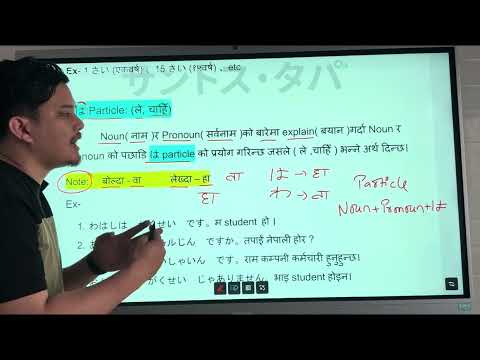 Ex- 1 さい (एकवर्ष) 、 15 さい (१५वर्ष) 、etc
サントス・タパ
は Particle: (ले, चाहिँ)
Noun( नाम )र Pronoun( सर्वनाम )को बारेमा explain( बयान )गर्दा Noun र
noun को पछाडि は particle को प्रयोग गरिन्छ जसले ( ले ,चाहिँ ) भन्ने अर्थ दिन्छ।
Note: बोल्दा - वा लेख्दा – हा
वा は → हा Particle
हा わ → वा Noun+Pronoun+は
Ex-
1. わたしは せい です。म student हो ।
2. ルじん ですか。तपाईं नेपाली होर ?
しゃいん です。राम कम्पनी कर्मचारी हुनुहुन्छ।
がくせい じゃありません。भाइ student होइन।